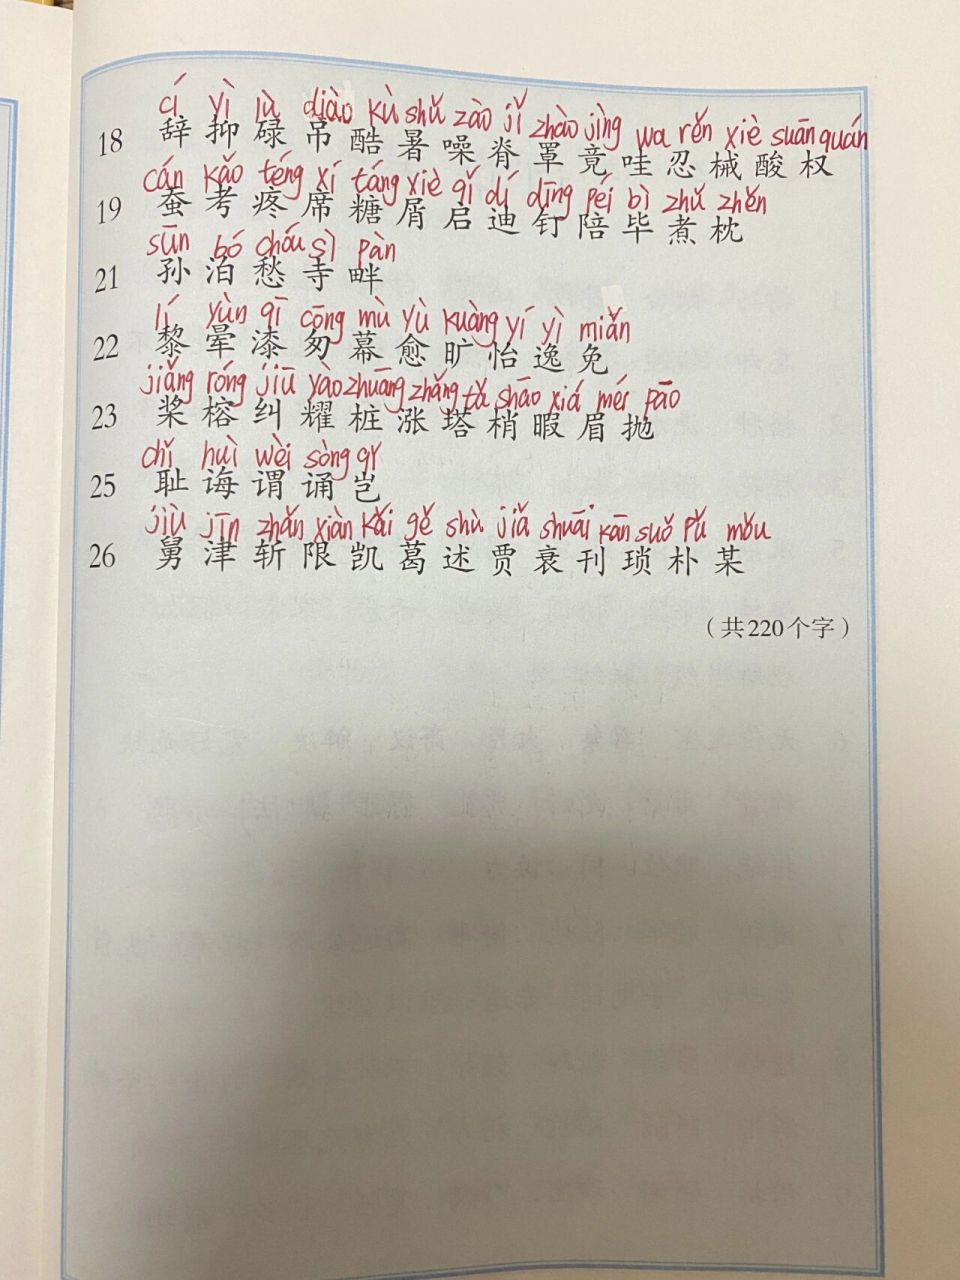 cí yì lù diào kù shǔ zào jǐ zhào jìng wa rěn xiè suān quán
18 辞 抑 碌 吊 酷 暑 噪 脊 罩 竟 哇 忍 械 酸 权
cán kǎo téng xí táng xiè qǐ dí dīng péi bì zhǔ zhěn
19 蚕 考 疼 席 糖 屑 启 迪 钉 陪 毕 煮 枕
sūn bó chóu sì pàn
21 孙 泊 愁 寺 畔
lí yùn qī cōng mù yù kuàng yí yì miǎn
22 黎 晕 漆 匆 幕 愈 旷 怡 逸 免
jiǎng róng jiū yào zhuāng zhǎng tǎ shāo xiá méi pāo
23 桨 榕 纠 耀 桩 涨 塔 梢 暇 眉 抛
chǐ huì wèi sòng qǐ
25 耻 诲 谓 诵 岂
jiù jīn zhǎn xiàn kǎi gě shù jiǎ shuāi kān suǒ pǔ mǒu
26 舅 津 斩 限 凯 葛 述 贾 衰 刊 琐 朴 某
（共220个字）